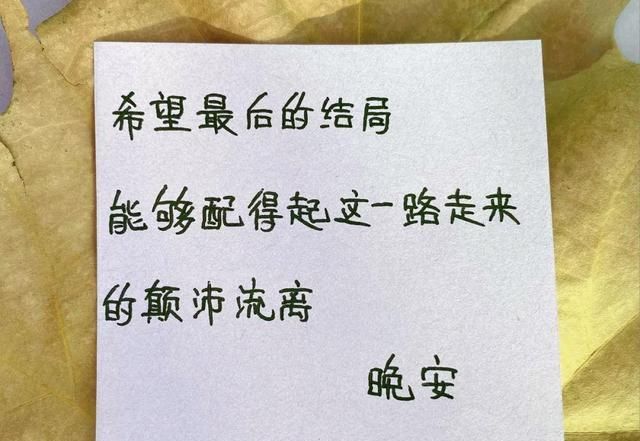 希望最后的结局
能够配得起这一路走来
的颠沛流离
晚安